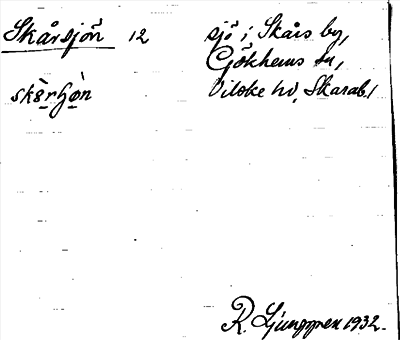 Skårsjön 12 sjö i Skårs by,
Gökhems sn,
Vilske hd, Skarab. l
R. Ljunggren 1932.